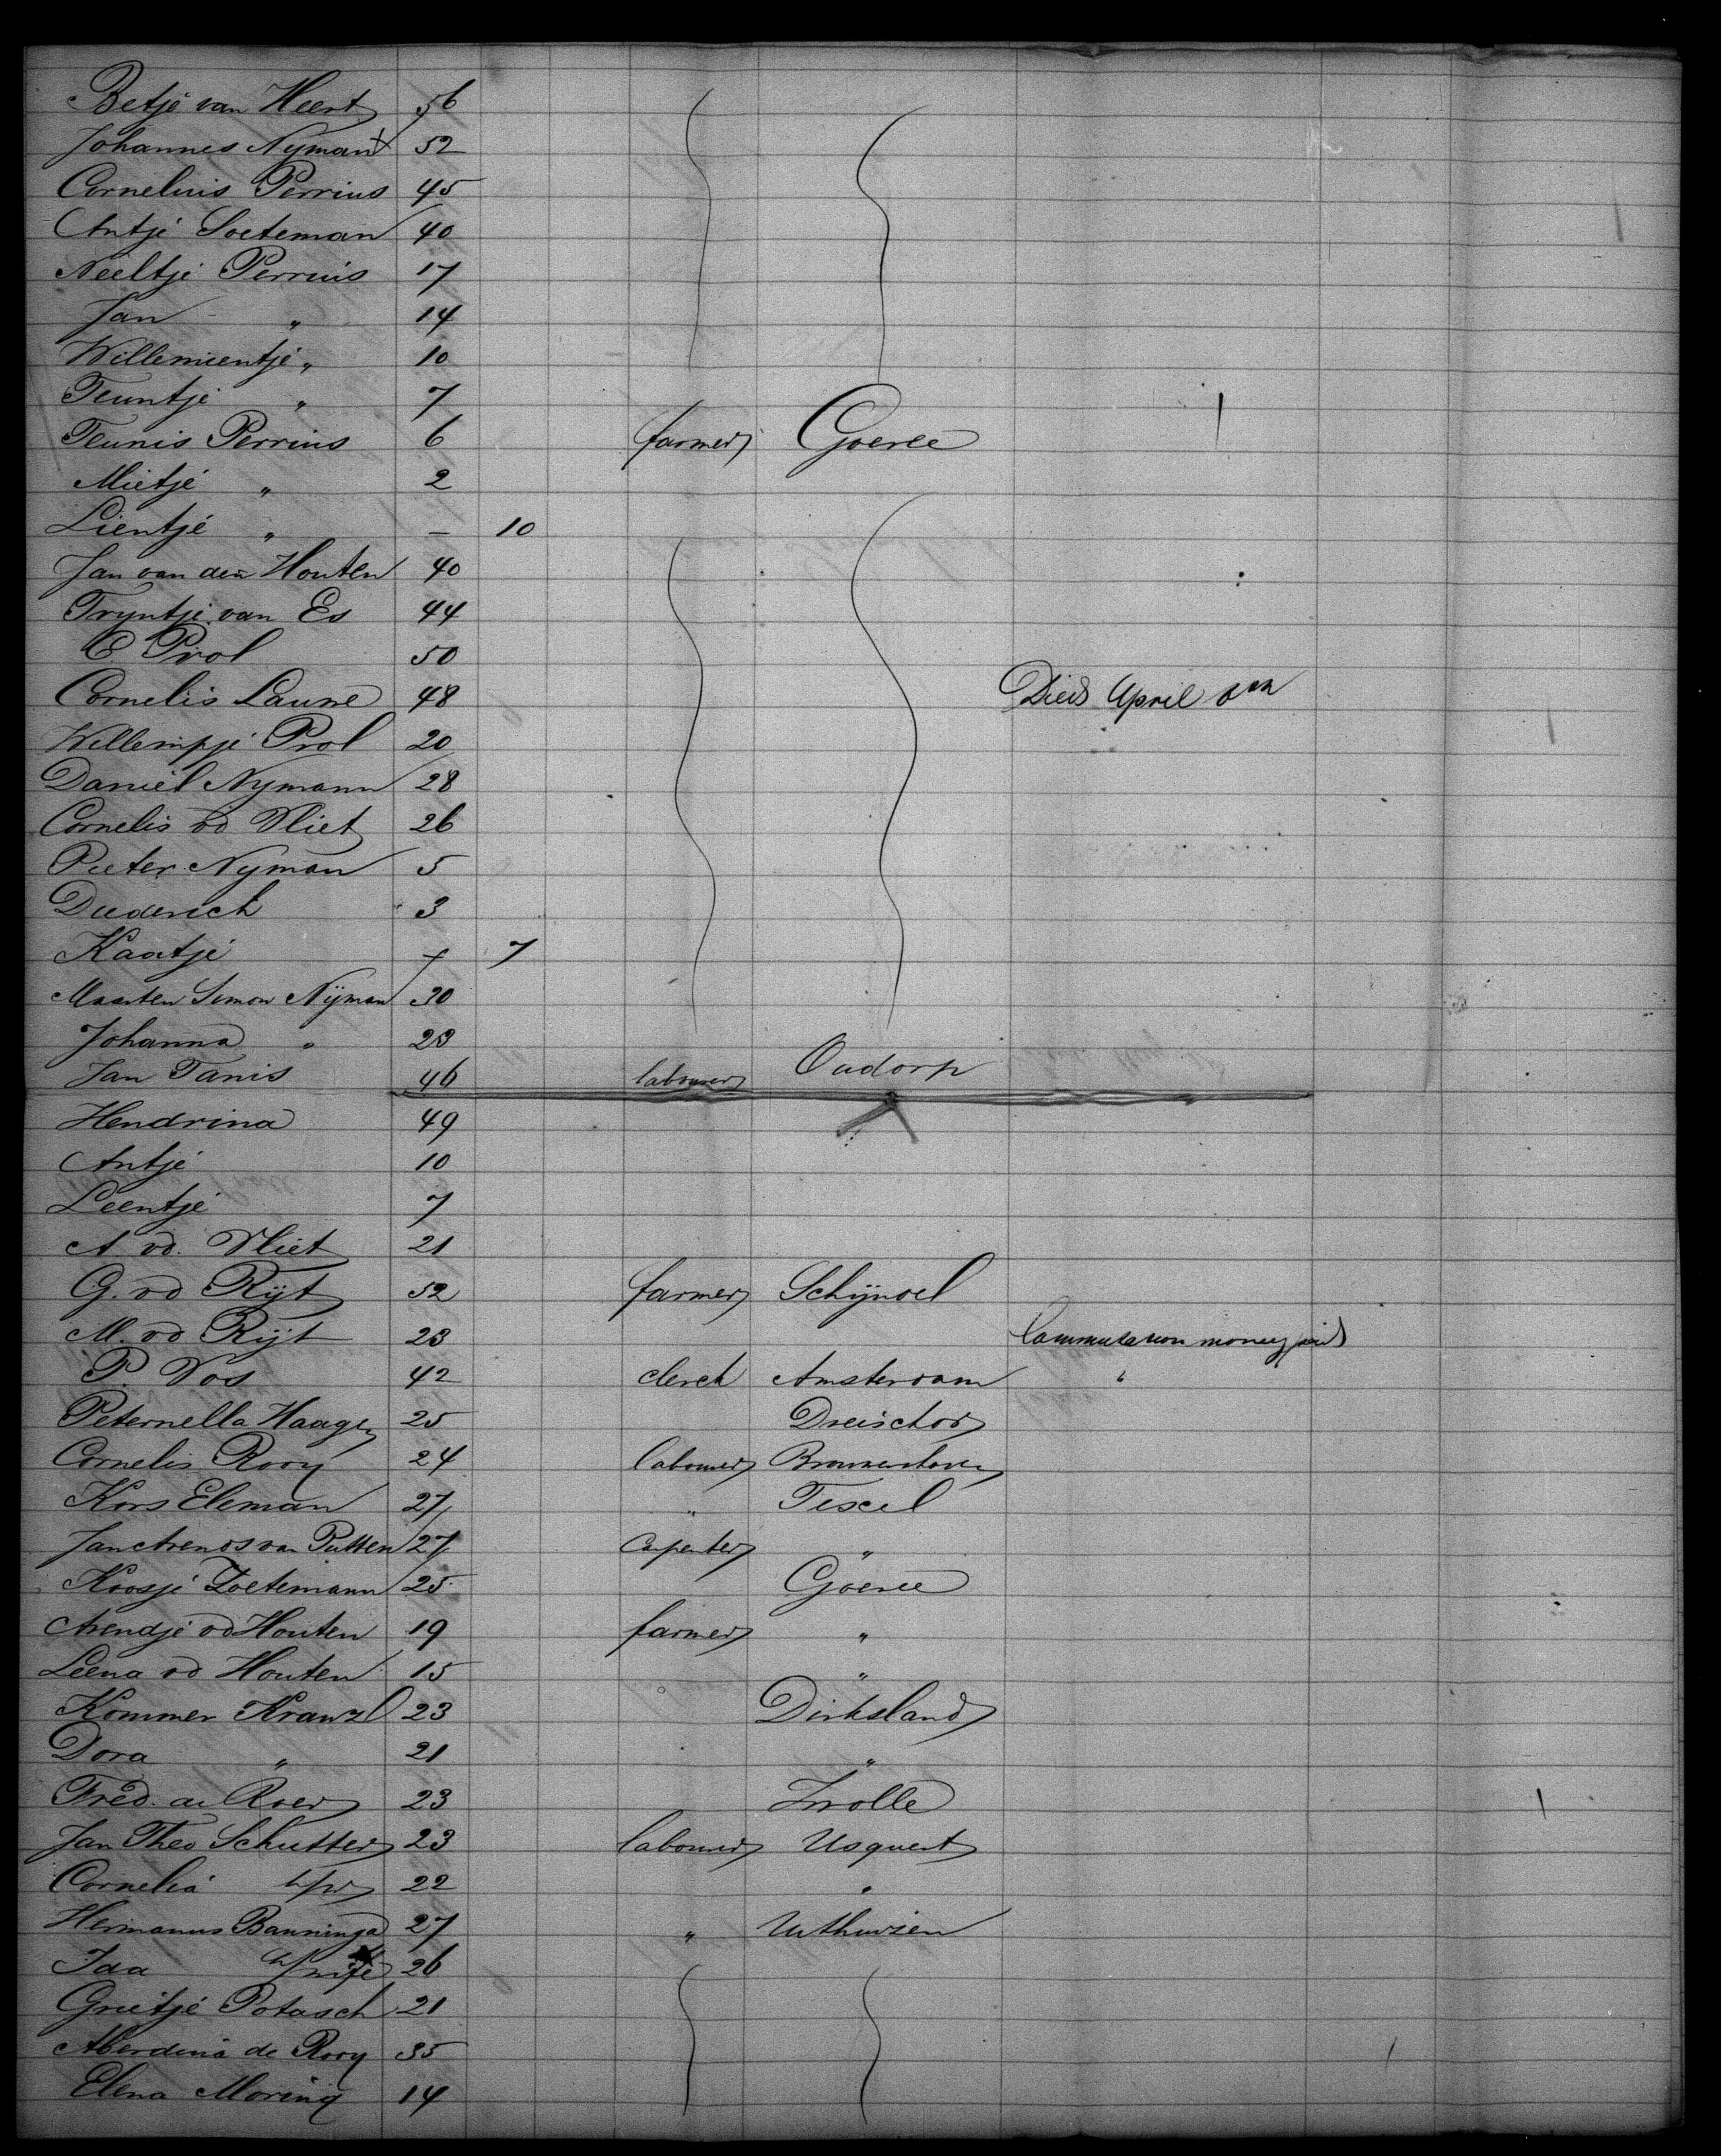 Betje van Heert 56
Johannes Nyman x 52
Cornelius Perrius 45
Antje Soeteman 40
Neeltje Perrius 17
Jan " 14
Willemientje " 10
Teuntje " 7
Teunis Perrius 6 farmer Goeree
Mietje " 2
Lientje " – 10
Jan van den Houten 40
Tryntje van Es 44
E. Prol 50
Cornelis Laune 48 Died April
Willempje Prol 20
Daniel Nymann 28
Cornelis vd Vliet 26
Pieter Nyman 5
Diederich 3
Kaatje 7
Maarten Simon Nÿman 30
Johanna " 23
Jan Tanis 46 labourer Oudorp
Hendrina 49
Antje 10
Leentje 7
A. vd. Vliet 21
G. vd Rÿt 52 farmer Schÿnoel
M. vd Rÿt 23 Commutation money paid
P. Vos 42 clerck Amsterdam "
Peternella Haage 25 Dreischor
Cornelis Rooy 24 labourer
Kors Eleman 27 " Texel
Jan Arends van Putten 27 Carpenter "
Koosje Zoetemann 25 Goeree
Arendje vd Houten 19 farmer "
Leena vd Houten 15 "
Kommer Kranzl 23 Dirksland
Dora " 21 "
Fred. de Roer 23 Zwolle
Jan Theo Schutter 23 labourer Usquert
Cornelia 22 "
Hermanus Banninga 27 " Uithuizen
Ida wife 26
Grietje Potasch 21
Aberdina de Rooy 35
Elena Moring 14